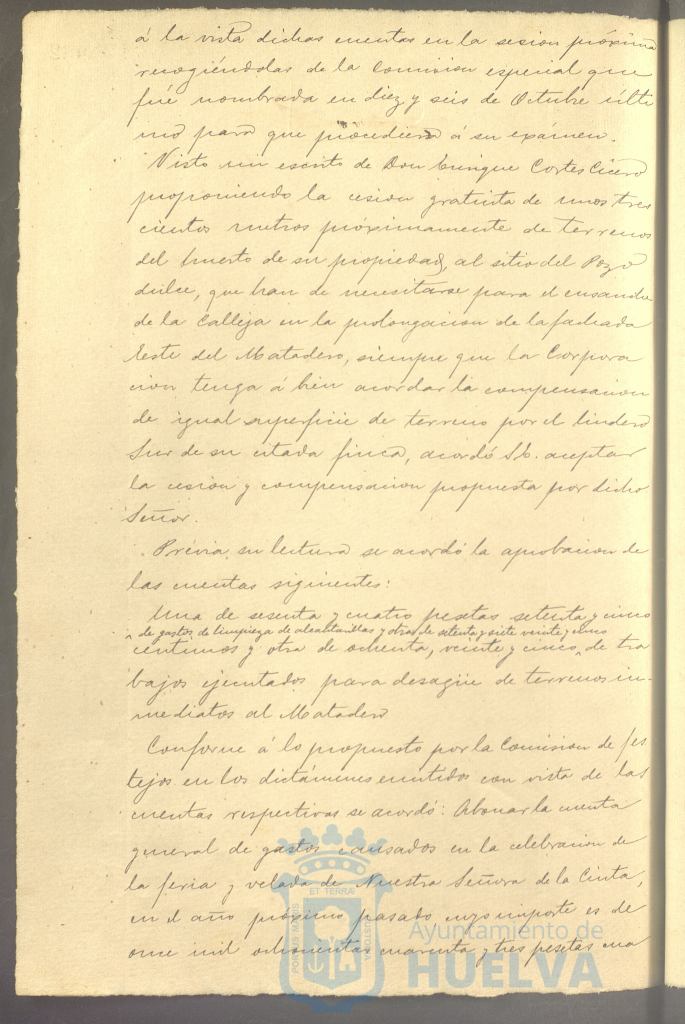 á la vista dichas cuentas en la sesion próxima
recogiéndolas de la Comision especial que
fué nombrada en diez y seis de Octubre últi
mo para que procediera á su exámen.
Visto un escrito de Don Enrique Cortes Cicero
proponiendo la cesion gratuita de unos tres
cientos metros próximamente de terrenos
del huerto de su propiedad, al sitio del Pozo
dulce, que han de necesitarse para el ensanche
de la Calleja en la prolongacion de la fachada
Este del Matadero, siempre que la Corpora
cion tenga á bien acordar la compensacion
de igual superficie de terreno por el lindero
Sur de su citada finca, acordó S.E. aceptar
la cesion y compensacion propuesta por dicho
Señor.
Prévia su lectura se acordó la aprobacion de
las cuentas siguientes:
Una de sesenta y cuatro pesetas setenta y cinco
de gastos de limpieza de alcantarillas y otra de setenta y siete veinte y cinco
centimos y otra de ochenta, veinte y cinco, de tra
bajos ejecutados para desagüe de terrenos in-
mediatos al Matadero
Conforme á lo propuesto por la Comision de fes
tejos en los dictámenes emitidos con vista de las
cuentas respectivas se acordó: Abonar la cuenta
general de gastos causados en la celebracion de
la feria y velada de Nuestra Señora de la Cinta,
en el año próximo pasado cuyo importe es de
once mil ochocientas cuarenta y tres pesetas cua
ET TERRÆ
PORTUS MARIS
CUSTODIA
Ayuntamiento de
HUELVA